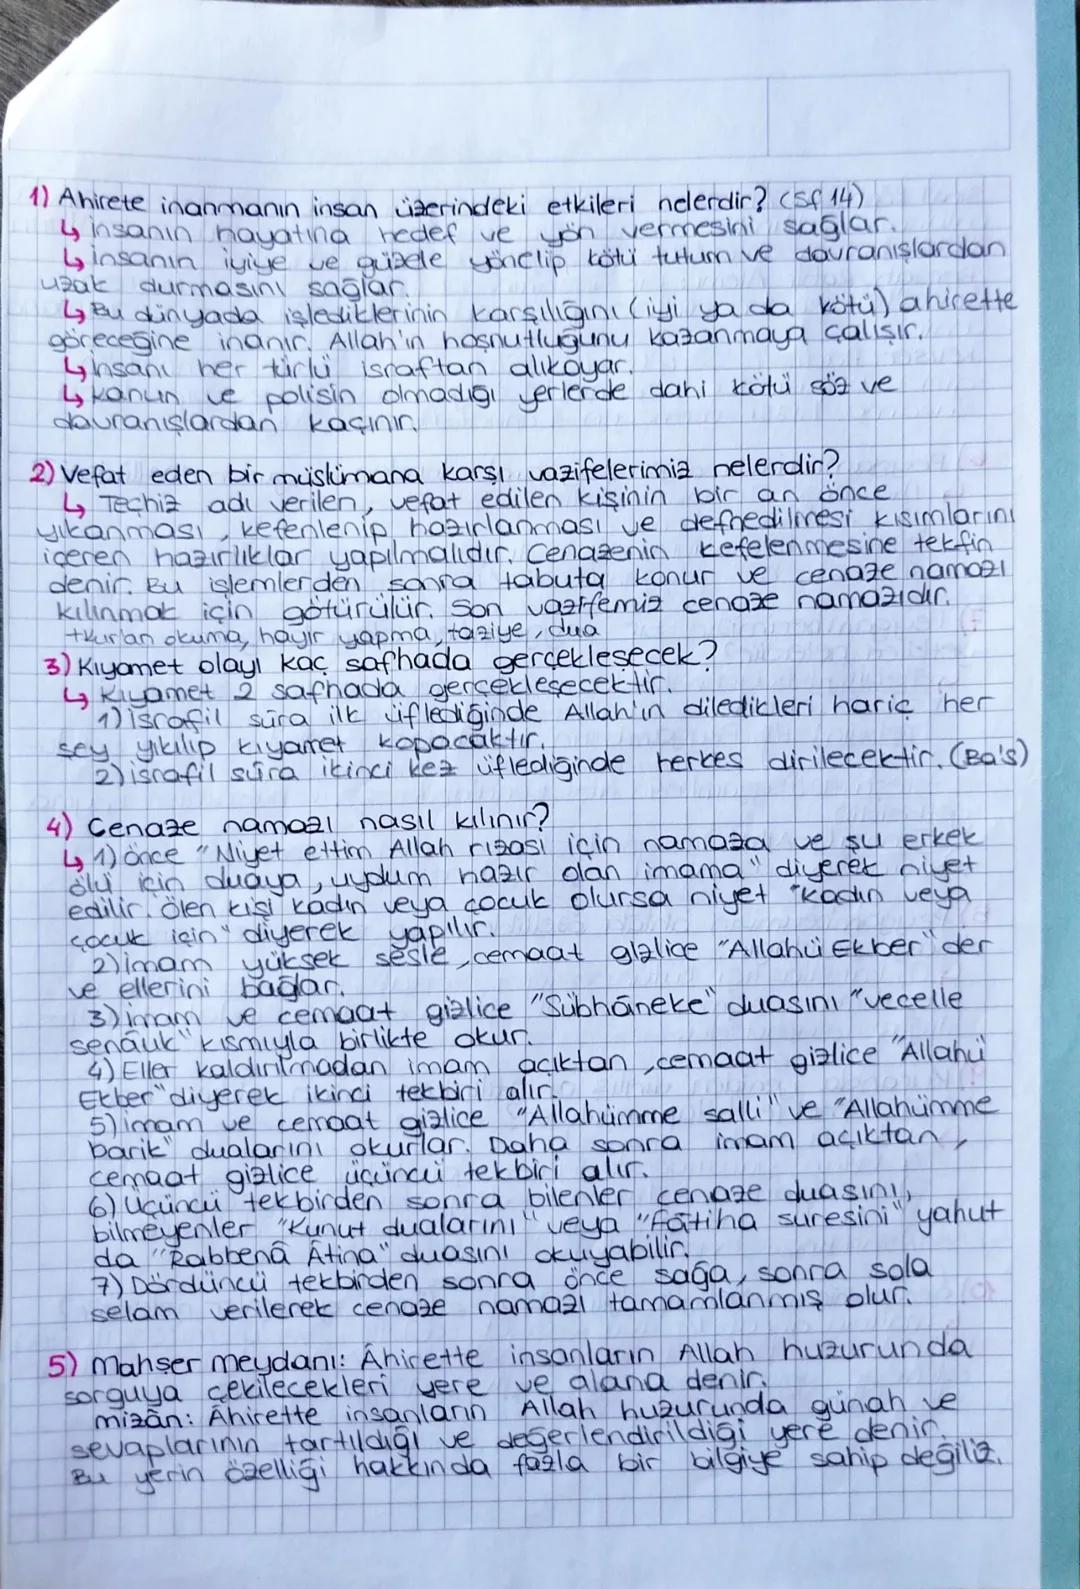 1) Ahirete inanmanın insan üzerindeki etkileri nelerdir? (Sf 14)
↳ insanın hayatına hedef ve yön vermesini sağlar.
↳ insanın iyiye ve güzele yönelip kötü tutum ve davranışlardan
uzak durmasını sağlar.
↳ Bu dünyada işlediklerinin karşılığını (iyi ya da kötü) ahirette
göreceğine inanır. Allah'ın hoşnutluğunu kazanmaya çalışır.
↳ insanı her türlü israftan alıkoyar.
↳ kanun ve polisin olmadığı yerlerde dahi kötü söz ve
davranışlardan kaçının.
2) Vefat eden bir müslümana karşı vazifelerimiz nelerdir?
↳ Teçhiz adı verilen, vefat edilen kişinin bir an önce
yıkanması, kefenlenip hazırlanması ve defnedilmesi kısımlarını
içeren hazırlıklar yapılmalıdır. Cenazenin kefelenmesine tekfin
denir. Bu işlemlerden sonra tabuta konur ve cenaze namazı
kılınmak için götürülür. Son vazifemiz cenaze namazıdır.
+kur'an okuma, hayır yapma, taziye, dua
3) Kıyamet olayı kaç safhada gerçekleşecek?
↳ Kıyamet 2 safhada gerçekleşecektir.
1) israfil sûra ilk üflediğinde Allah'ın diledikleri hariç her
şey yıkılıp kıyamet kopacaktır.
2) israfil sûra ikinci kez üflediğinde herkes dirilecektir. (Ba's)
4) Cenaze namazı nasıl kılınır?
↳ 1) önce "Niyet ettim Allah rızası için namaza ve şu erkek
ölü için duaya, uydum hazır olan imama" diyerek niyet
edilir. Ölen kişi kadın veya çocuk olursa niyet "kadın veya
çocuk için" diyerek yapılır.
2) imam yüksek sesle, cemaat gizlice "Allahü Ekber" der
ve ellerini bağlar.
3) imam ve cemaat gizlice "Sübhâneke" duasını "vecelle
senâuk" kısmıyla birlikte okur.
4) Eller kaldırılmadan imam açıktan, cemaat gizlice "Allahü
Ekber" diyerek ikinci tekbiri alır.
5) imam ve cemaat gizlice "Allahümme salli" ve "Allahümme
barik" dualarını okurlar. Daha sonra imam açıktan,
cemaat gizlice üçüncü tekbiri alır.
6) Üçüncü tekbirden sonra bilenler cenaze duasını,
bilmeyenler "Kunut dualarını" veya "Fâtiha suresini" yahut
da "Rabbenâ Âtina" duasını okuyabilir.
7) Dördüncü tekbirden sonra önce sağa, sonra sola
selam verilerek cenaze namazı tamamlanmış olur.
5) Mahşer meydanı: Âhirette insanların Allah huzurunda
sorguya çekilecekleri yere ve alana denir.
mizân: Âhirette insanların Allah huzurunda günah ve
sevaplarının tartıldığı ve değerlendirildiği yere denir.
Bu yerin özelliği hakkında fazla bir bilgiye sahip değiliz.